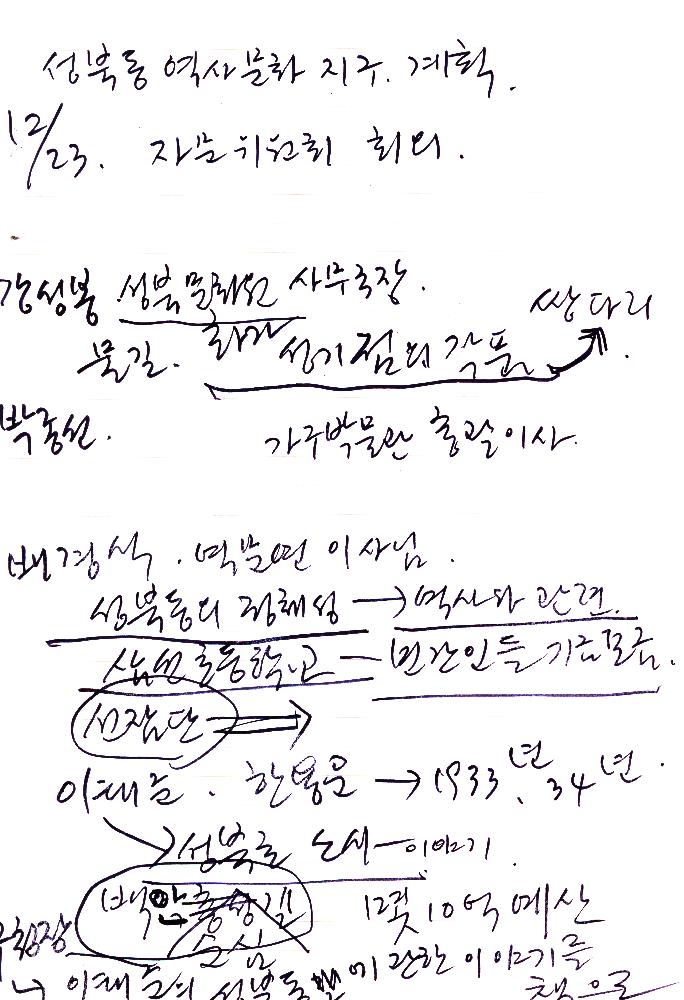 성북동 역사문화 지구. 계획.
12/23. 자문위원회 회의.
강성봉 성북문화원 사무국장.
쌍다리
물길. 화가 성기점의 작품.
박종선. 가구박물관 총괄이사.
배경식. 역문연 이사님.
성북동의 정체성 → 역사와 관련.
삼선초등학교 — 민간인들 기금모금.
선잠단 ⇒
이태준. 한용운 → 1933년, 34년.
성북동 도시 — 이야기.
10억 예산
이태준의 성북동 에 관한 이야기를
책으로